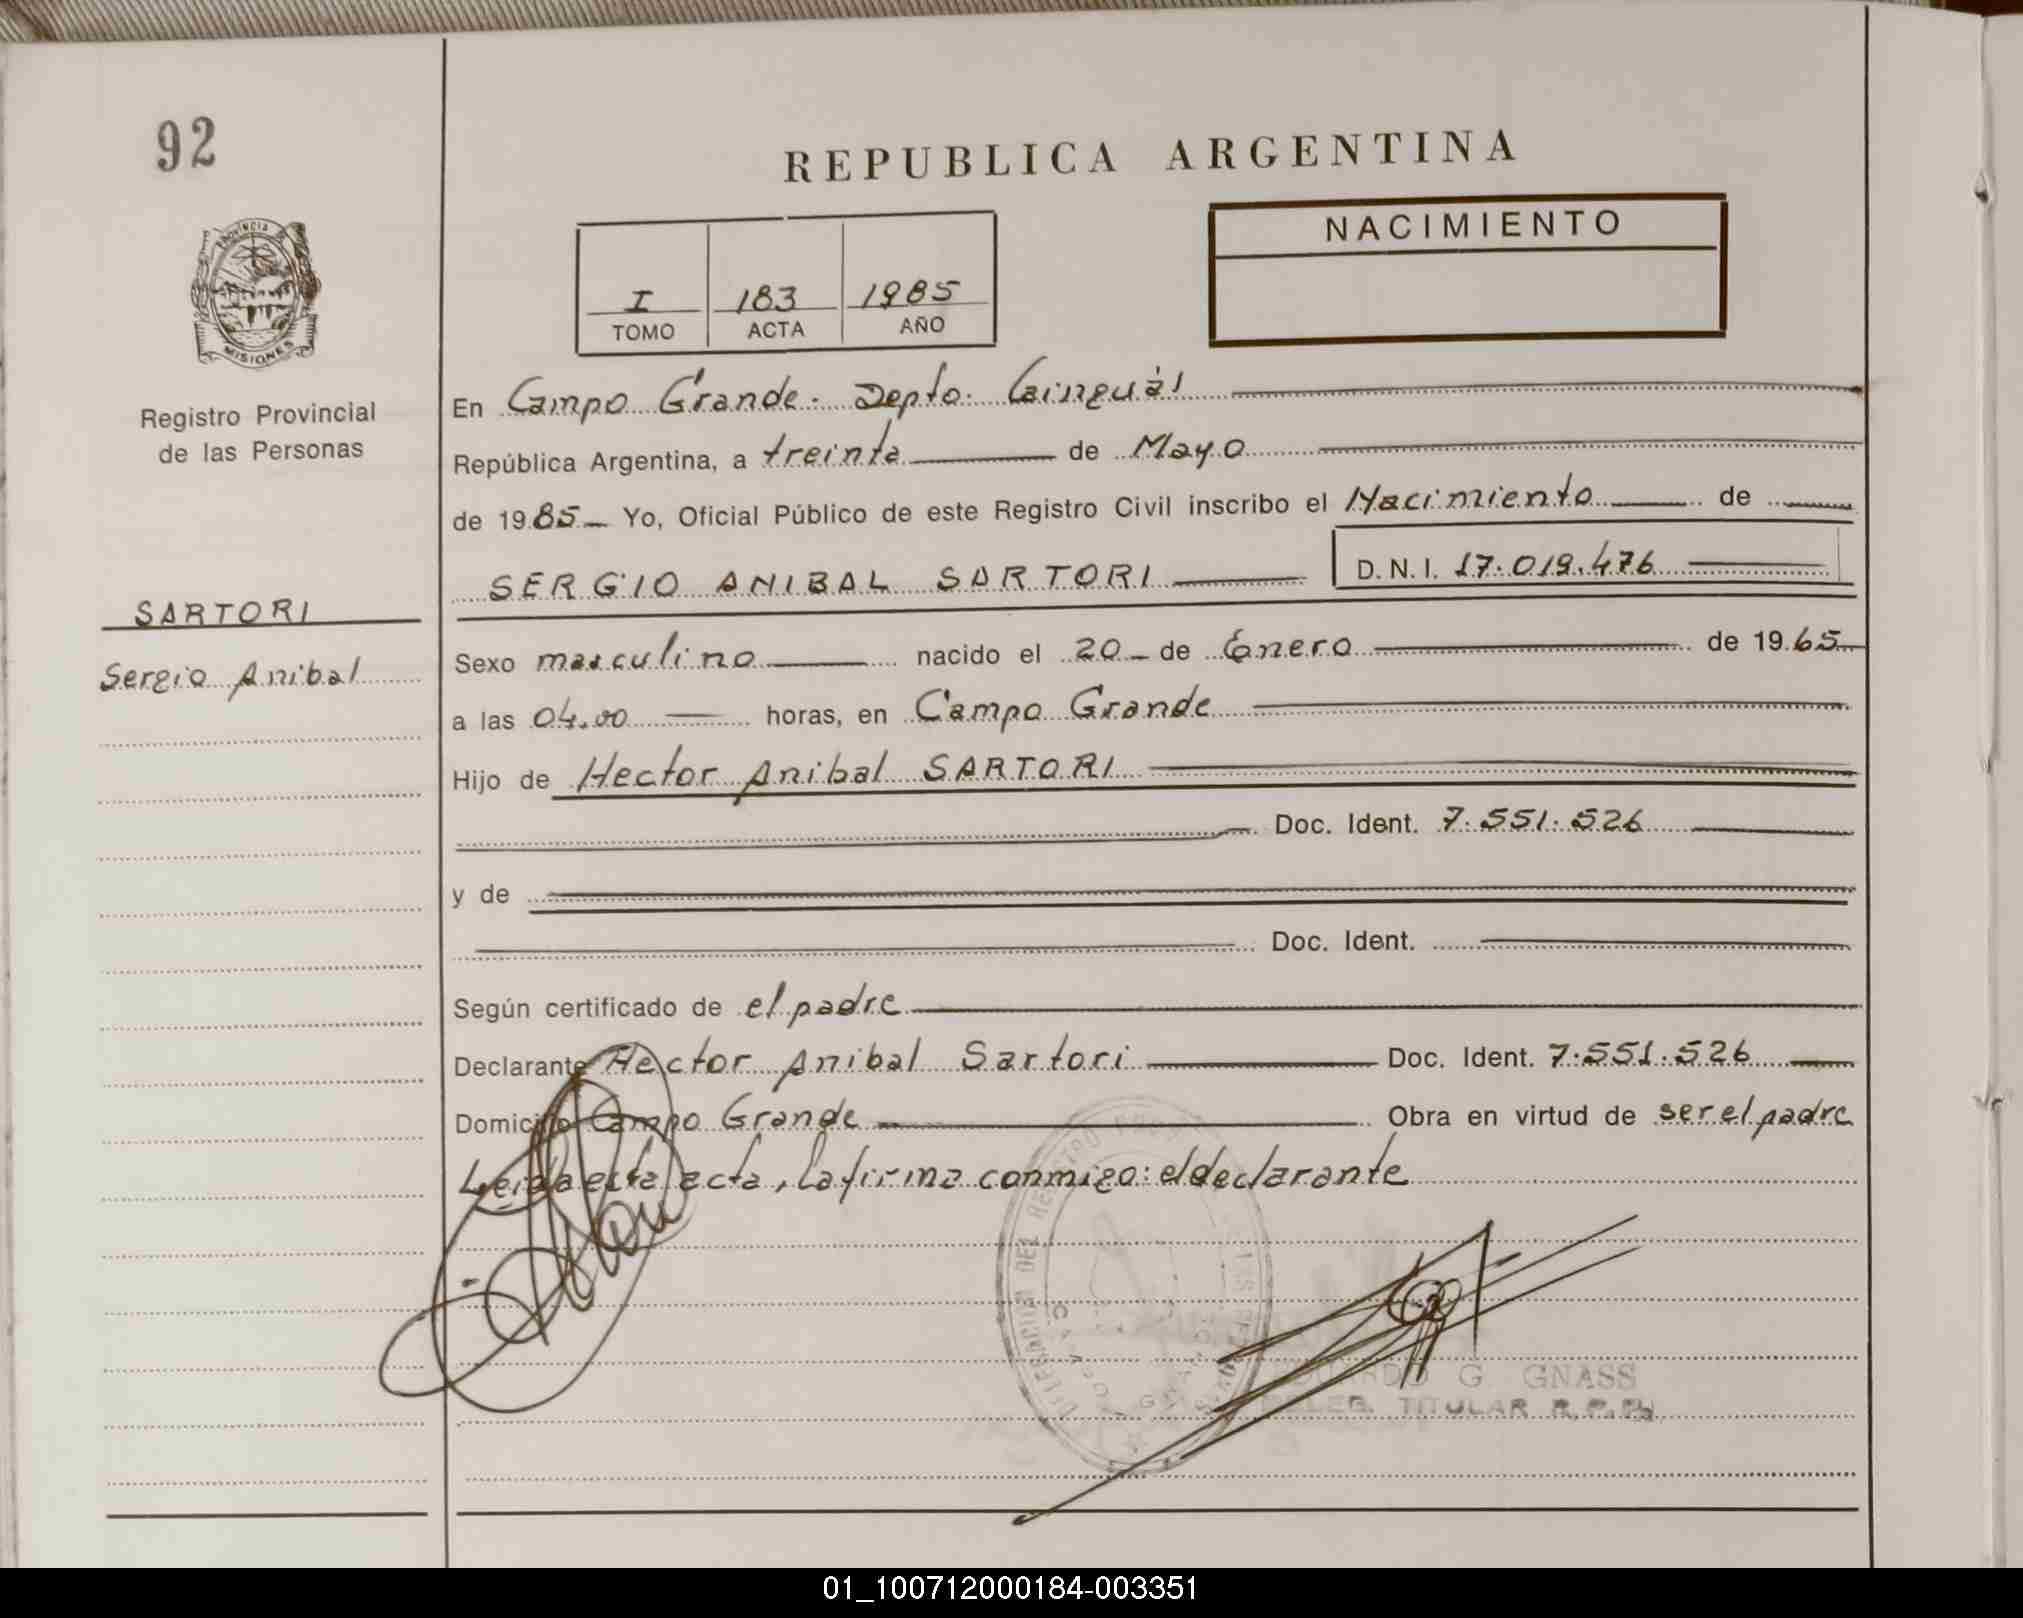 92
REPUBLICA ARGENTINA
NACIMIENTO
I 183 1985
TOMO ACTA AÑO
PROVINCIA
MISIONES
Registro Provincial
de las Personas
SARTORI
Sergio Anibal
En Campo Grande. Depto. Cainguás
República Argentina, a treinta de Mayo
de 1985 Yo, Oficial Público de este Registro Civil inscribo el Nacimiento de
SERGIO ANIBAL SARTORI D.N.I. 17.019.476
Sexo masculino nacido el 20 de Enero de 1965
a las 04.00 horas, en Campo Grande
Hijo de Hector Anibal SARTORI
Doc. Ident. 7.551.526
y de
Doc. Ident.
Según certificado de el padre
Declarante Hector Anibal Sartori Doc. Ident. 7.551.526
Domicilio Campo Grande Obra en virtud de ser el padre
Leida esta acta, la firma conmigo: el declarante
DELEGACION DEL REGISTRO
G. GNASS
DELEG. TITULAR R.P.P.
01_100712000184-003351